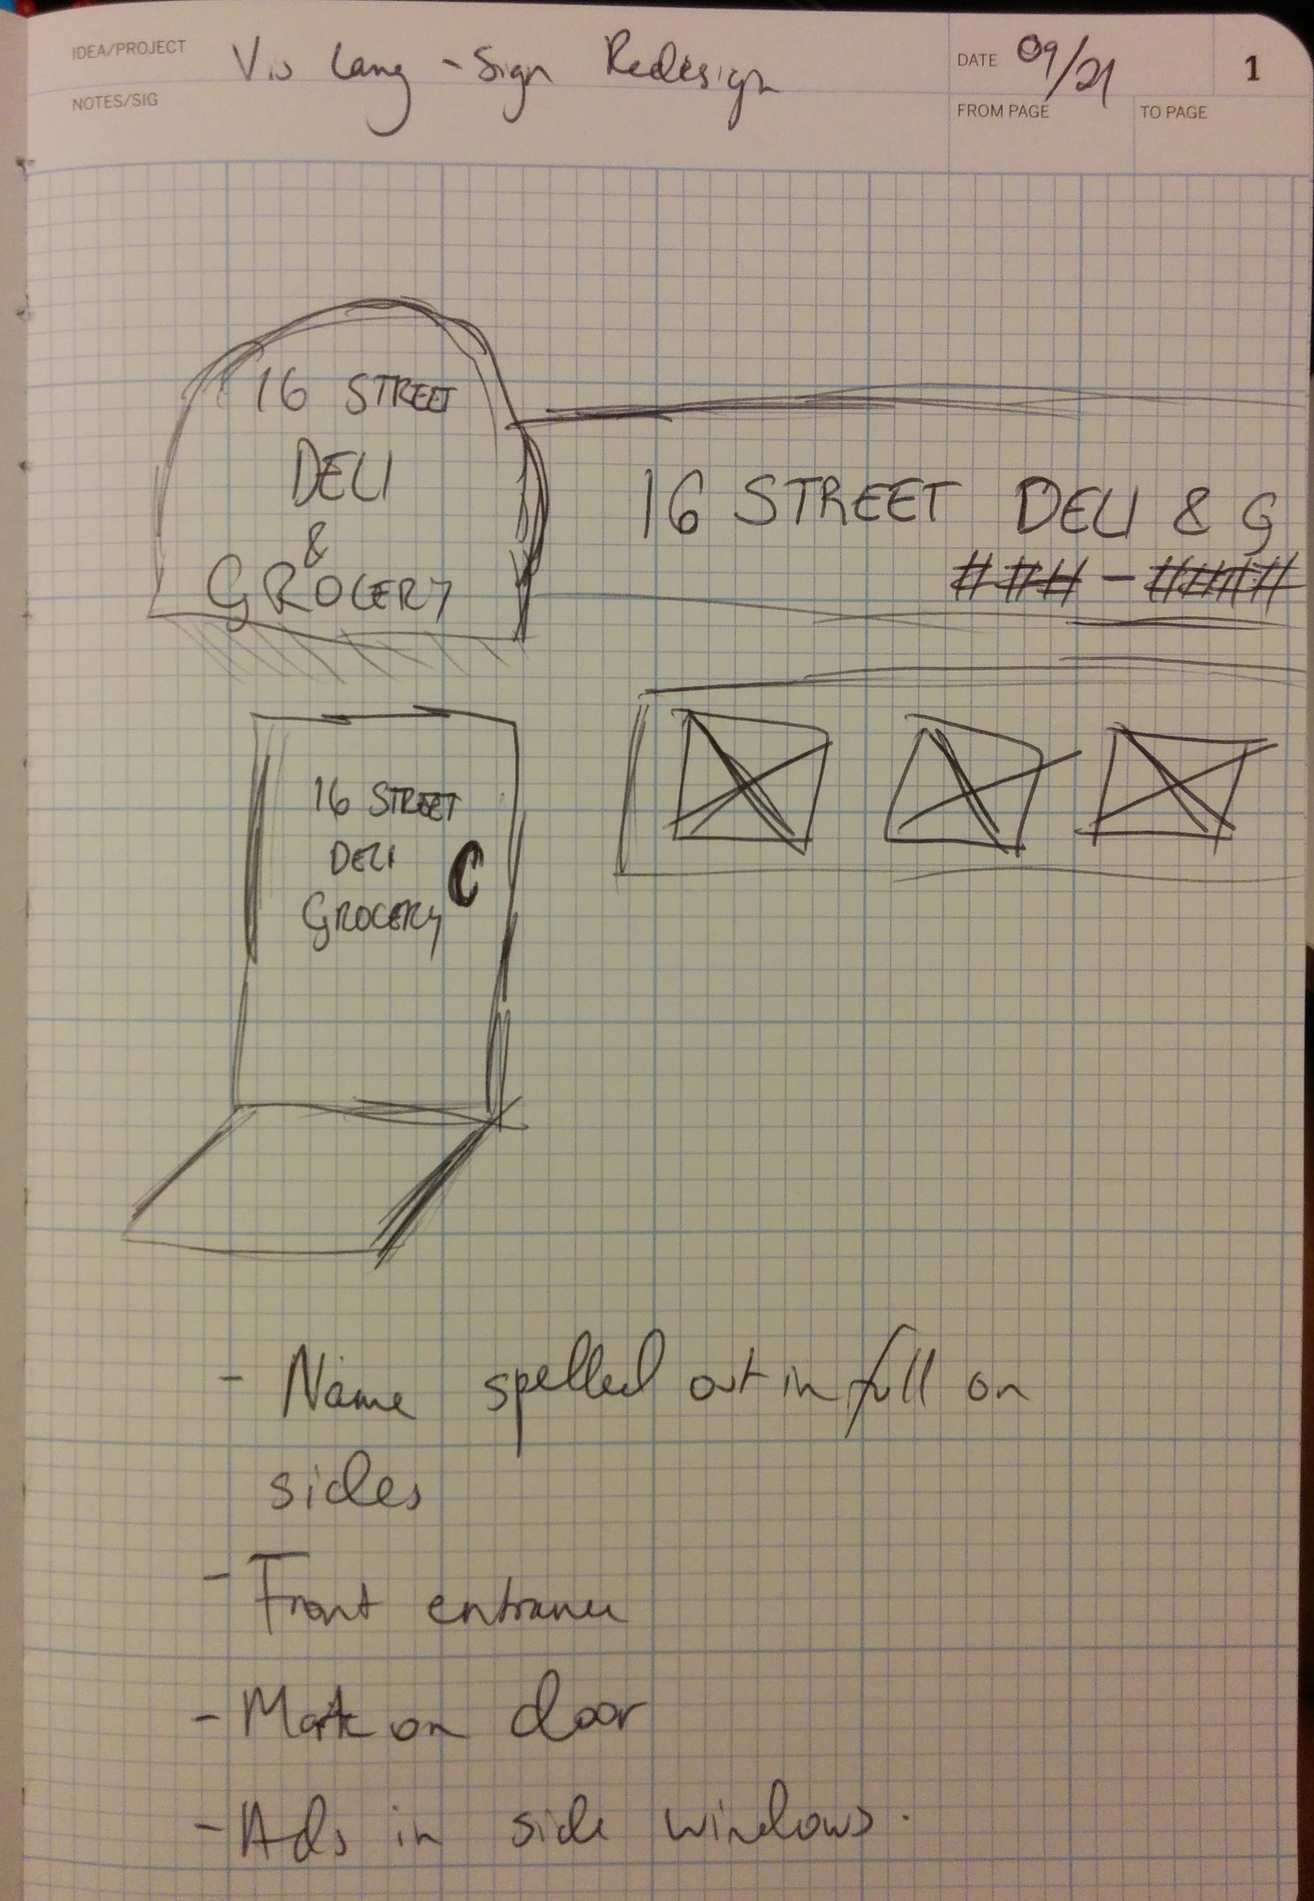 IDEA/PROJECT Vis Lang - Sign Redesign
DATE 09/21
1
NOTES/SIG
FROM PAGE
TO PAGE
16 STREET
DELI
&
GROCERY
16 STREET DELI & G
### - ####
16 STREET
DELI
GROCERY
- Name spelled out in full on
sides
- Front entrance
- Mark on door
- Ads in side windows.